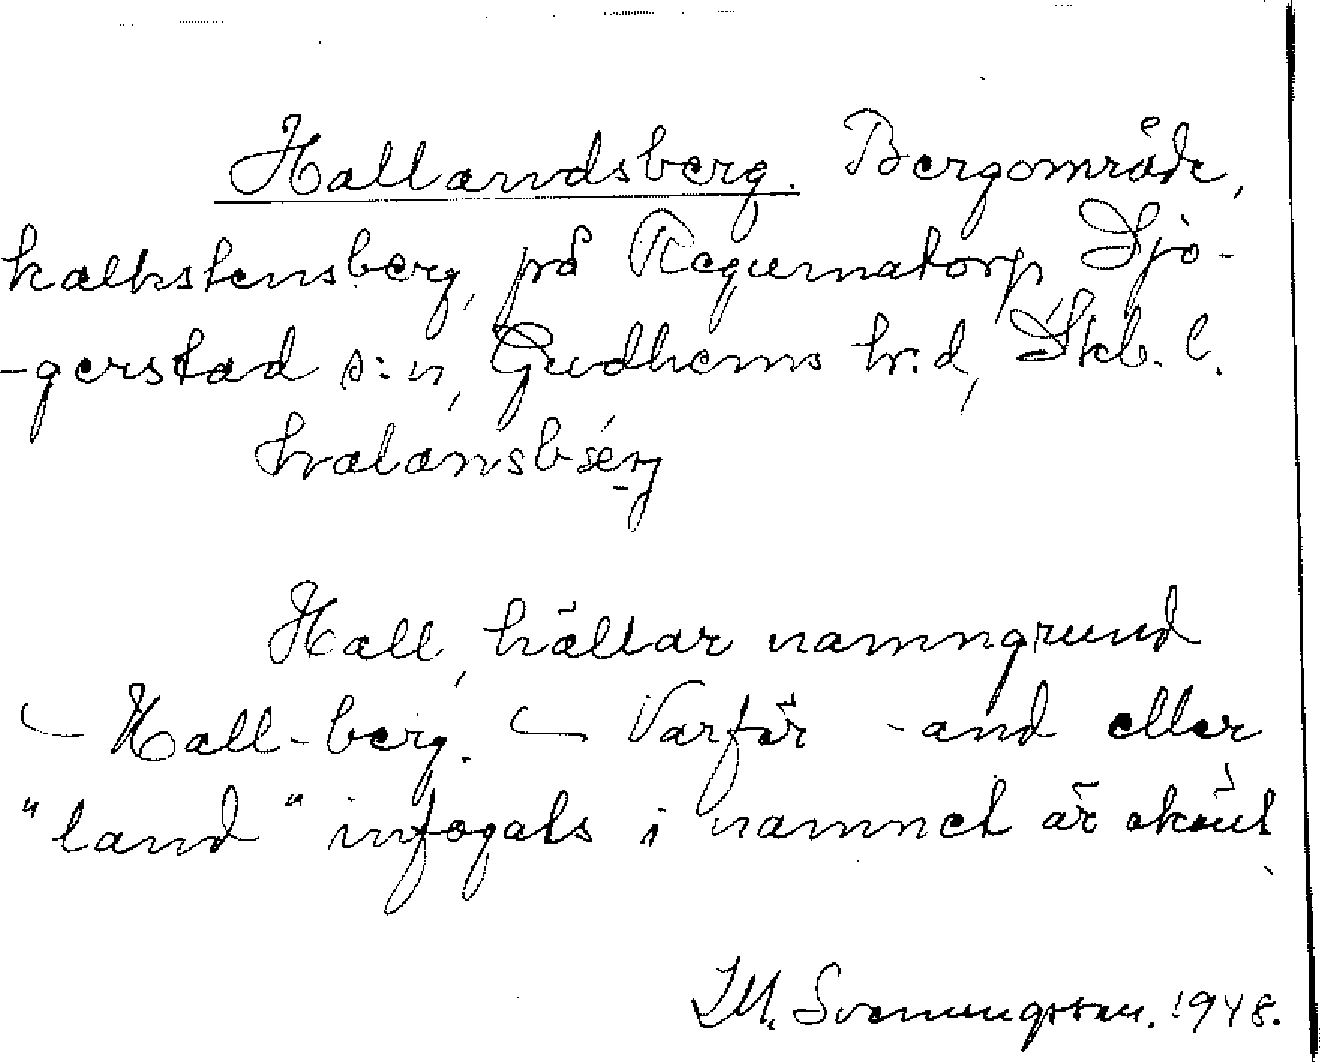 Hallandsberg. Bergområde,
kalkstensberg, på Regumatorp, Sjo-
-gerstad s:n, Gudhems h:d, Skb. l.
halansbérg
Hall, hällar namngrund
– Hall-berg. – Varför -and eller
"land" infogats i namnet är okänt
Svenungsson. 1948.